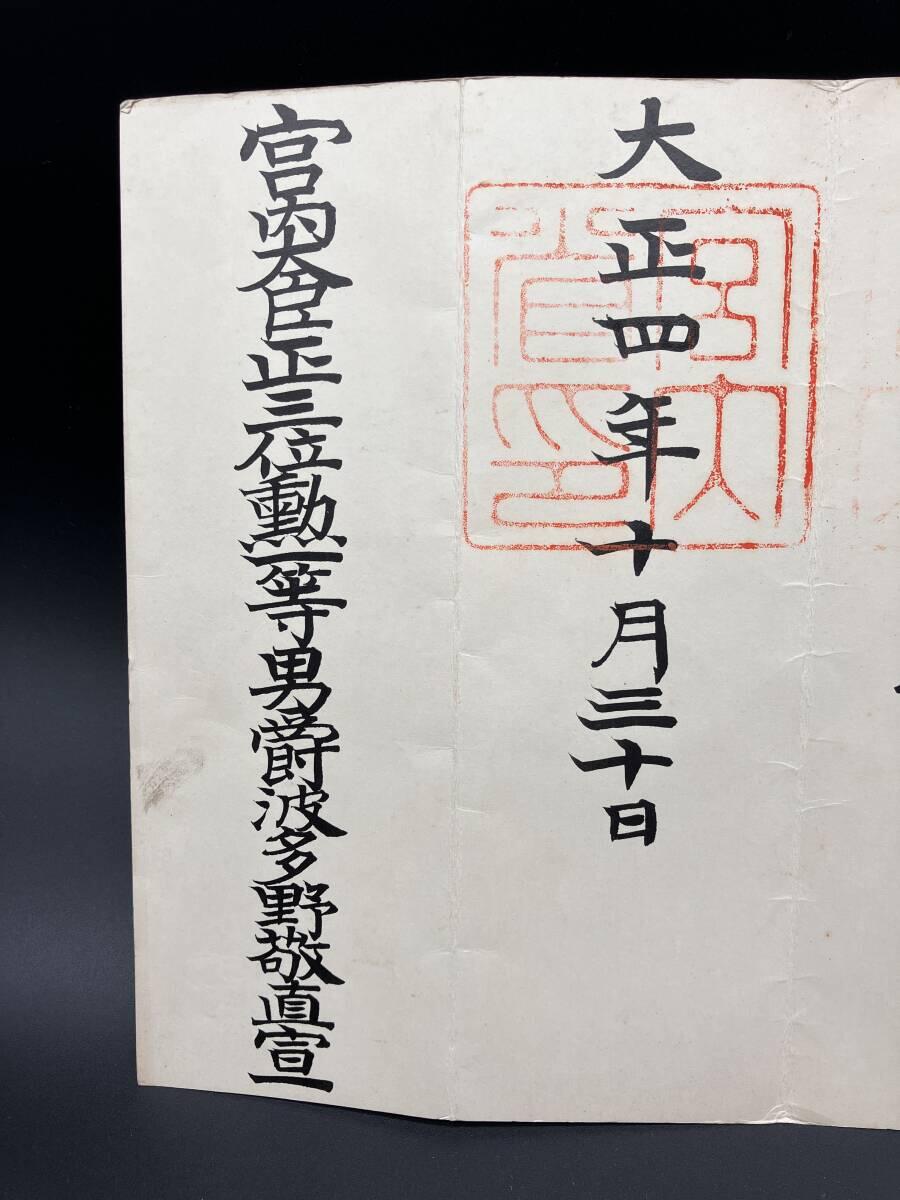 大正四年十月三十日
宮内省印
宮内大臣正三位勳一等男爵波多野敬直宣